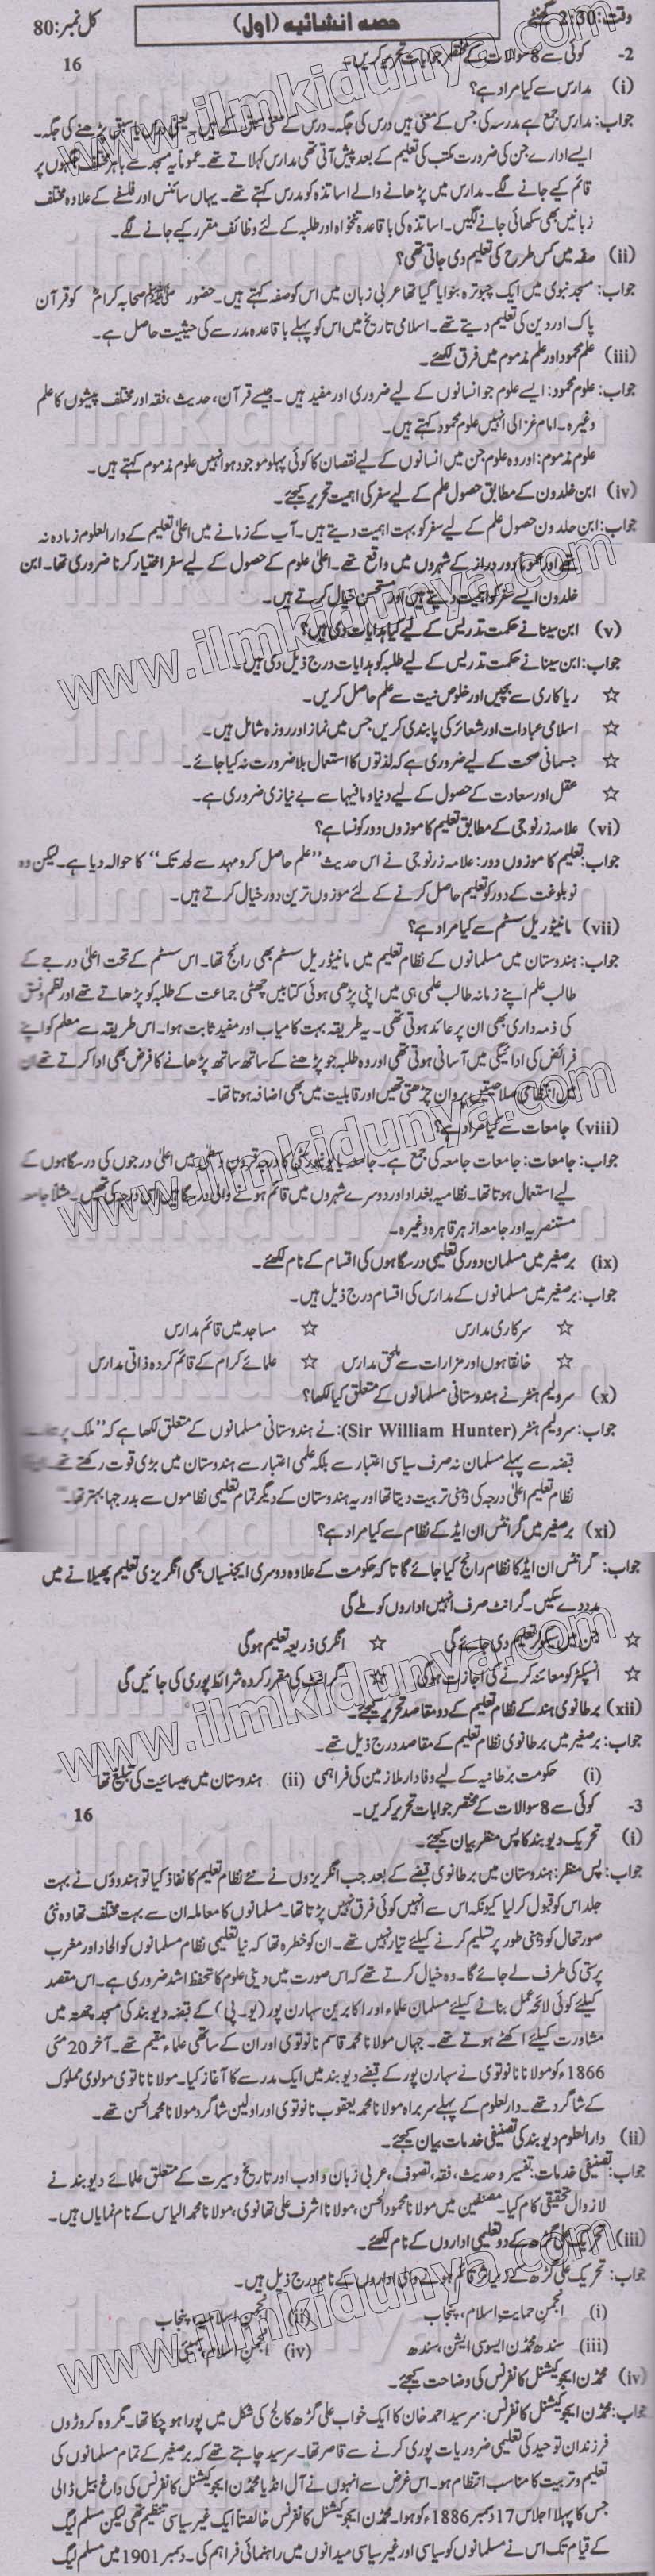 وقت: 2:30 گھنٹے
حصہ انشائیہ (اول)
کل نمبر: 80
2- کوئی سے 8 سوالات کے مختصر جوابات تحریر کریں۔ 16
(i) مدارس سے کیا مراد ہے؟
جواب: مدارس جمع ہے مدرسہ کی جس کے معنی ہیں درس کی جگہ۔ درس کے معنی سبق کے ہیں۔ یعنی درس یا سبق پڑھنے کی جگہ۔
ایسے ادارے جن کی ضرورت مکتب کی تعلیم کے بعد پیش آتی تھی مدارس کہلاتے تھے۔ عموماً یہ مسجد سے باہر مختلف جگہوں پر
قائم کیے جانے لگے۔ مدارس میں پڑھانے والے اساتذہ کو مدرس کہتے تھے۔ یہاں سائنس اور فلسفے کے علاوہ مختلف
زبانیں بھی سکھائی جانے لگیں۔ اساتذہ کی باقاعدہ تنخواہ اور طلبہ کے لئے وظائف مقرر کیے جانے لگے۔
(ii) صفہ میں کس طرح کی تعلیم دی جاتی تھی؟
جواب: مسجد نبوی میں ایک چبوترہ بنوایا گیا تھا عربی زبان میں اس کو صفہ کہتے ہیں۔ حضور ﷺ صحابہ کرامؓ کو قرآن
پاک اور دین کی تعلیم دیتے تھے۔ اسلامی تاریخ میں اس کو پہلے باقاعدہ مدرسے کی حیثیت حاصل ہے۔
(iii) علم محمود اور علم مذموم میں فرق لکھئے۔
جواب: علوم محمود: ایسے علوم جو انسانوں کے لیے ضروری اور مفید ہیں۔ جیسے قرآن، حدیث، فقہ اور مختلف پیشوں کا علم
وغیرہ۔ امام غزالی انہیں علوم محمود کہتے ہیں۔
علوم مذموم: اور وہ علوم جن میں انسانوں کے لیے نقصان کا کوئی پہلو موجود ہو انہیں علوم مذموم کہتے ہیں۔
(iv) ابن خلدون کے مطابق حصول علم کے لیے سفر کی اہمیت تحریر کیجئے۔
جواب: ابن خلدون حصول علم کے لیے سفر کو بہت اہمیت دیتے ہیں۔ آپ کے زمانے میں اعلیٰ تعلیم کے دارالعلوم زیادہ نہ
تھے اور عموماً دور دراز کے شہروں میں واقع تھے۔ اعلیٰ علوم کے حصول کے لیے سفر اختیار کرنا ضروری تھا۔ ابن
خلدون ایسے سفر کو اہمیت دیتے ہیں اور مستحسن خیال کرتے ہیں۔
(v) ابن سینا نے حکمت تدریس کے لیے کیا ہدایات دی ہیں؟
جواب: ابن سینا نے حکمت تدریس کے لیے طلبہ کو ہدایات درج ذیل دی ہیں۔
☆ ریاکاری سے بچیں اور خلوص نیت سے علم حاصل کریں۔
☆ اسلامی عبادات اور شعائر کی پابندی کریں جس میں نماز اور روزہ شامل ہیں۔
☆ جسمانی صحت کے لیے ضروری ہے کہ لذتوں کا استعمال بلا ضرورت نہ کیا جائے۔
☆ عقل اور سعادت کے حصول کے لیے دنیا و مافیہا سے بے نیازی ضروری ہے۔
(vi) علامہ زرنوجی کے مطابق تعلیم کا موزوں دور کونسا ہے؟
جواب: تعلیم کا موزوں دور: علامہ زرنوجی نے اس حدیث "علم حاصل کرو مہد سے لحد تک" کا حوالہ دیا ہے۔ لیکن وہ
نو بلوغت کے دور کو تعلیم حاصل کرنے کے لئے موزوں ترین دور خیال کرتے ہیں۔
(vii) مانیٹوریل سسٹم سے کیا مراد ہے؟
جواب: ہندوستان میں مسلمانوں کے نظام تعلیم میں مانیٹوریل سسٹم بھی رائج تھا۔ اس سسٹم کے تحت اعلیٰ درجے کے
طالب علم اپنے زمانہ طالب علمی ہی میں اپنی پڑھی ہوئی کتابیں چھٹی جماعت کے طلبہ کو پڑھاتے تھے اور نظم و نسق
کی ذمہ داری بھی ان پر عائد ہوتی تھی۔ یہ طریقہ بہت کامیاب اور مفید ثابت ہوا۔ اس طریقہ سے معلم کو اپنے
فرائض کی ادائیگی میں آسانی ہوتی تھی اور وہ طلبہ جو پڑھنے کے ساتھ ساتھ پڑھانے کا فرض بھی ادا کرتے تھے ان
میں انتظامی صلاحیتیں پروان چڑھتی تھیں اور قابلیت میں بھی اضافہ ہوتا تھا۔
(viii) جامعات سے کیا مراد ہے؟
جواب: جامعات: جامعات جامعہ کی جمع ہے۔ جامعہ یا یونیورسٹی کا درجہ قرون وسطیٰ میں اعلیٰ درجوں کی درسگاہوں کے
لیے استعمال ہوتا تھا۔ نظامیہ بغداد اور دوسرے شہروں میں قائم ہونے والی درسگاہیں اسی درجہ کی تھیں۔ مثلاً جامعہ
مستنصریہ اور جامعہ ازہر قاہرہ وغیرہ۔
(ix) برصغیر میں مسلمان دور کی تعلیمی درسگاہوں کی اقسام کے نام لکھئے۔
جواب: برصغیر میں مسلمانوں کے مدارس کی اقسام درج ذیل ہیں۔
☆ سرکاری مدارس ☆ مساجد میں قائم مدارس
☆ خانقاہوں اور مزارات سے ملحق مدارس ☆ علمائے کرام کے قائم کردہ ذاتی مدارس
(x) سر ولیم ہنٹر نے ہندوستانی مسلمانوں کے متعلق کیا لکھا؟
جواب: سر ولیم ہنٹر (Sir William Hunter): نے ہندوستانی مسلمانوں کے متعلق لکھا ہے کہ "ملک پر
قبضہ سے پہلے مسلمان نہ صرف سیاسی اعتبار سے بلکہ علمی اعتبار سے ہندوستان میں بڑی قوت رکھتے تھے۔
نظام تعلیم اعلیٰ درجہ کی ذہنی تربیت دیتا تھا اور یہ ہندوستان کے دیگر تمام تعلیمی نظاموں سے بدرجہا بہتر تھا۔"
(xi) برصغیر میں گرانٹس ان ایڈ کے نظام سے کیا مراد ہے؟
جواب: گرانٹس ان ایڈ کا نظام رائج کیا جائے گا تاکہ حکومت کے علاوہ دوسری ایجنسیاں بھی انگریزی تعلیم پھیلانے میں
مدد دے سکیں۔ گرانٹ صرف انہیں اداروں کو ملے گی
☆ جن میں سیکولر تعلیم دی جائے گی ☆ انگری ذریعہ تعلیم ہوگی
☆ انسپکٹر کو معائنہ کرنے کی اجازت ہوگی ☆ گرانٹ کی مقرر کردہ شرائط پوری کی جائیں گی
(xii) برطانوی ہند کے نظام تعلیم کے دو مقاصد تحریر کیجئے۔
جواب: برصغیر میں برطانوی نظام تعلیم کے مقاصد درج ذیل تھے۔
(i) حکومت برطانیہ کے لیے وفادار ملازمین کی فراہمی (ii) ہندوستان میں عیسائیت کی تبلیغ تھا
3- کوئی سے 8 سوالات کے مختصر جوابات تحریر کریں۔ 16
(i) تحریک دیوبند کا پس منظر بیان کیجئے۔
جواب: پس منظر: ہندوستان میں برطانوی قبضے کے بعد جب انگریزوں نے نئے نظام تعلیم کا نفاذ کیا تو ہندوؤں نے بہت
جلد اس کو قبول کر لیا کیونکہ اس سے انہیں کوئی فرق نہیں پڑتا تھا۔ مسلمانوں کا معاملہ ان سے بہت مختلف تھا وہ نئی
صورتحال کو ذہنی طور پر تسلیم کرنے کیلئے تیار نہیں تھے۔ ان کو خطرہ تھا کہ نیا تعلیمی نظام مسلمانوں کو الحاد اور مغرب
پرستی کی طرف لے جائے گا۔ وہ خیال کرتے تھے کہ اس صورت میں دینی علوم کا تحفظ اشد ضروری ہے۔ اس مقصد
کیلئے کوئی لائحہ عمل بنانے کیلئے مسلمان علماء اور اکابرین سہارن پور (یو۔پی) کے قصبہ دیوبند کی مسجد چھتہ میں
مشاورت کیلئے اکٹھے ہوتے تھے۔ جہاں مولانا محمد قاسم نانوتوی اور ان کے ساتھی علماء مقیم تھے۔ آخر 20 مئی
1866ء کو مولانا نانوتوی نے سہارن پور کے قصبے دیوبند میں ایک مدرسے کا آغاز کیا۔ مولانا نانوتوی مولوی مملوک
کے شاگرد تھے۔ دارالعلوم کے پہلے سربراہ مولانا محمد یعقوب نانوتوی اور اولین شاگرد مولانا محمد الحسن تھے۔
(ii) دارالعلوم دیوبند کی تصنیفی خدمات بیان کیجئے۔
جواب: تصنیفی خدمات: تفسیر و حدیث، فقہ، تصوف، عربی زبان و ادب اور تاریخ و سیرت کے متعلق علمائے دیوبند نے
لازوال تحقیقی کام کیا۔ مصنفین میں مولانا محمود الحسن، مولانا اشرف علی تھانوی، مولانا محمد الیاس کے نام نمایاں ہیں۔
(iii) تحریک علی گڑھ کے دو تعلیمی اداروں کے نام لکھئے۔
جواب: تحریک علی گڑھ کے زیر اثر قائم ہونے والی اداروں کے نام درج ذیل ہیں۔
(i) انجمن حمایت اسلام، پنجاب (ii) انجمن اسلامیہ، پنجاب
(iii) سندھ محمڈن ایسوسی ایشن، سندھ (iv) انجمن اسلام، بمبئی
(iv) محمڈن ایجوکیشنل کانفرنس کی وضاحت کیجئے۔
جواب: محمڈن ایجوکیشنل کانفرنس: سر سید احمد خان کا ایک خواب علی گڑھ کالج کی شکل میں پورا ہو چکا تھا۔ مگر وہ کروڑوں
فرزندان توحید کی تعلیمی ضروریات پوری کرنے سے قاصر تھا۔ سرسید چاہتے تھے کہ برصغیر کے تمام مسلمانوں کی
تعلیم و تربیت کا مناسب انتظام ہو۔ اس غرض سے انہوں نے آل انڈیا محمڈن ایجوکیشنل کانفرنس کی داغ بیل ڈالی
جس کا پہلا اجلاس 17 دسمبر 1886ء کو ہوا۔ محمڈن ایجوکیشنل کانفرنس خالصتاً ایک غیر سیاسی تنظیم تھی لیکن مسلم لیگ
کے قیام تک اس نے مسلمانوں کو سیاسی اور غیر سیاسی میدانوں میں راہنمائی فراہم کی۔ دسمبر 1901 میں مسلم لیگ
www.ilmkidunya.com